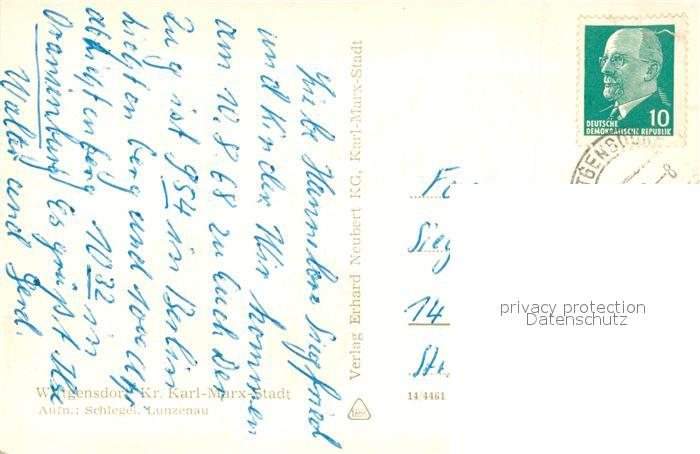 Liebe Hannelore Siegfried
und Kinder. Wir kommen
am 10.8.68 zu Euch Der
Zug ist 954 in Berlin
Lichtenberg und 10 Uhr
ab 1032 in
Oranienburg Es grüßt Ilse
Walter und Gerd.
Wittgensdorf Kr. Karl-Marx-Stadt
Aufn.: Schlegel, Lunzenau
Verlag Erhard Neubert KG, Karl-Marx-Stadt
14/4461
DEUTSCHE
DEMOKRATISCHE REPUBLIK
10
14
privacy protection
Datenschutz